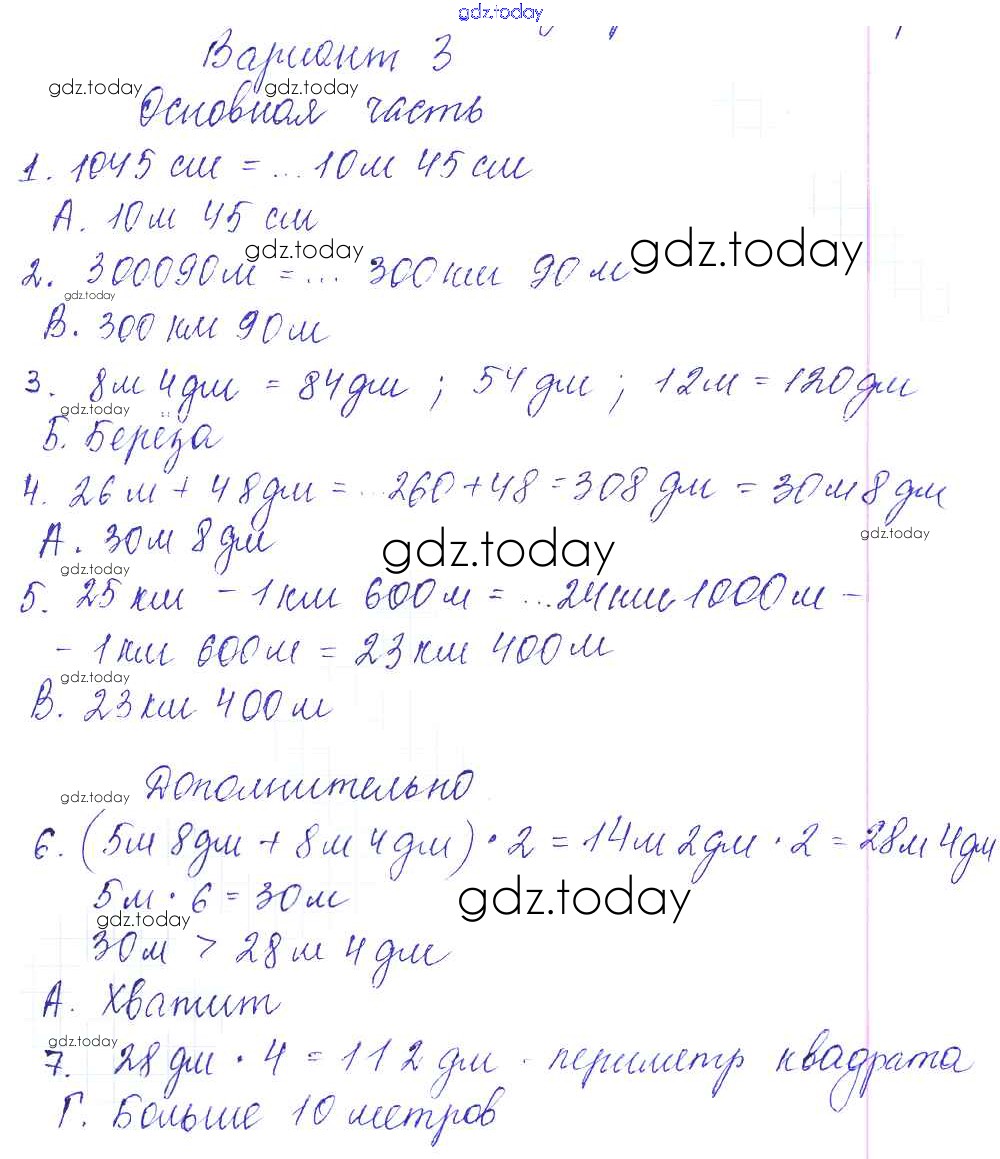 gdz.today
Вариант 3
gdz.today gdz.today
Основная часть
1. 1045 см = ... 10м 45 см
А. 10м 45 см
gdz.today gdz.today
2. 300090м = ... 300км 90м
gdz.today
В. 300 км 90м
3. 8м 4дм = 84дм ; 54дм ; 12м = 120дм
gdz.today
Б. Берёза
4. 26м + 48дм = ...260+48 = 308 дм = 30м 8дм
gdz.today
А. 30м 8дм
gdz.today
gdz.today
5. 25км - 1км 600м = ...24км 1000м -
- 1км 600м = 23км 400м
gdz.today
В. 23км 400м
Дополнительно
gdz.today
6. (5м 8дм + 8м 4дм) · 2 = 14м 2дм · 2 = 28м 4дм
5м · 6 = 30м
gdz.today
gdz.today
30м > 28м 4дм
А. Хватит
gdz.today
7. 28дм · 4 = 112дм - периметр квадрата
Г. Больше 10 метров